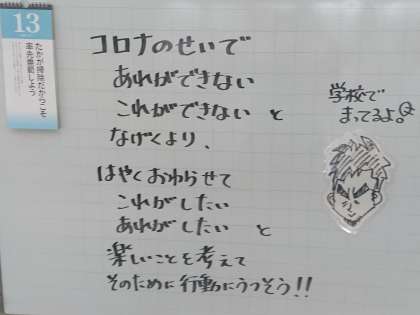 13
たかが掃除だからこそ
率先垂範しよう
コロナのせいで
あれができない
これができない と
なげくより、
はやくおわらせて
これがしたい
あれがしたい と
楽しいことを考えて
そのために行動にうつそう!!
学校で
まってるよ。